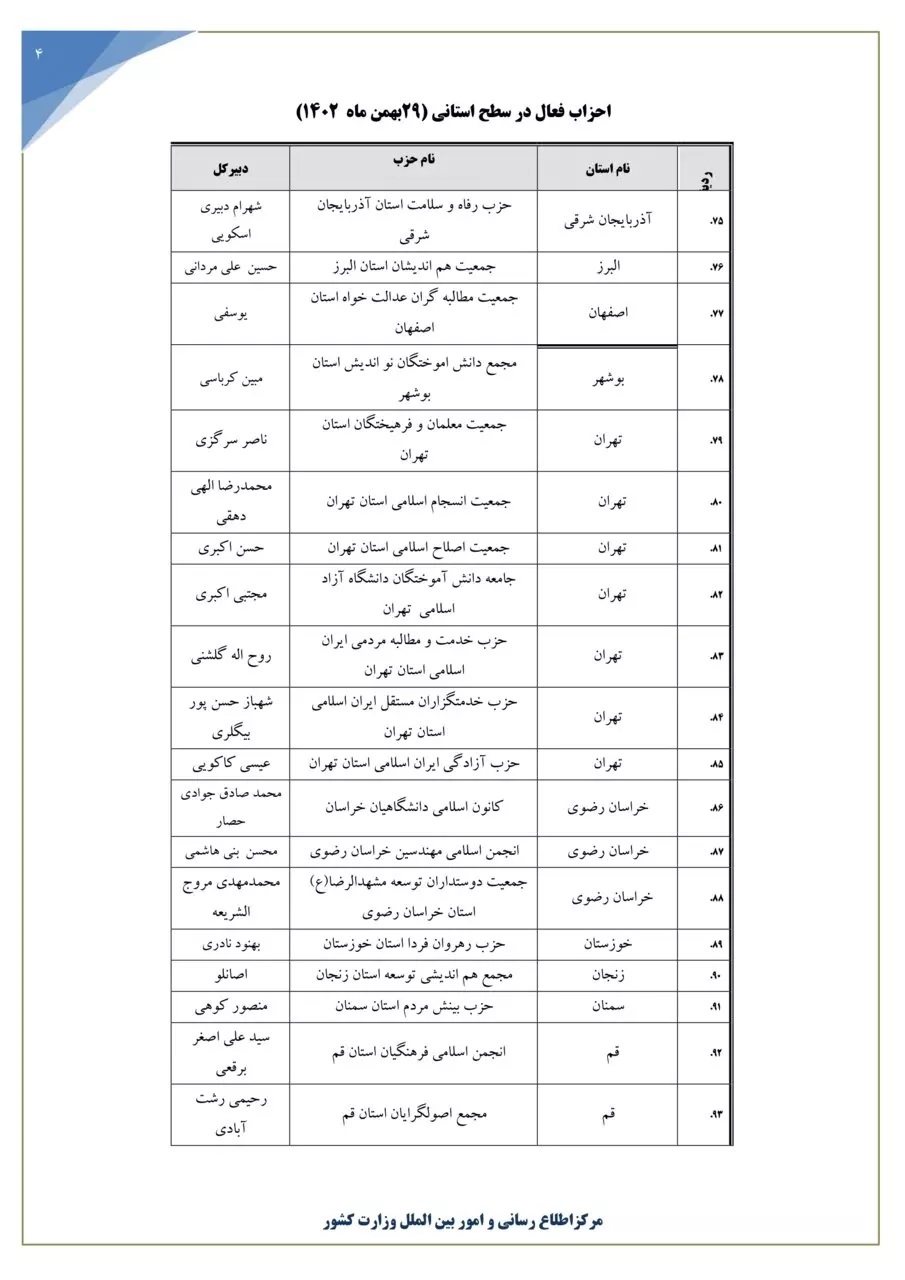 ۴
احزاب فعال در سطح استانی (۲۹بهمن ماه ۱۴۰۲)
ردی نام استان نام حزب دبیرکل
۷۵. آذربایجان شرقی حزب رفاه و سلامت استان آذربایجان شهرام دبیری
شرقی اسکویی
۷۶. البرز جمعیت هم اندیشان استان البرز حسین علی مردانی
۷۷. اصفهان جمعیت مطالبه گران عدالت خواه استان یوسفی
اصفهان
۷۸. بوشهر مجمع دانش اموختگان نو اندیش استان مبین کرباسی
بوشهر
۷۹. تهران جمعیت معلمان و فرهیختگان استان ناصر سرگزی
تهران
۸۰. تهران جمعیت انسجام اسلامی استان تهران محمدرضا الهی
دهقی
۸۱. تهران جمعیت اصلاح اسلامی استان تهران حسن اکبری
۸۲. تهران جامعه دانش آموختگان دانشگاه آزاد مجتبی اکبری
اسلامی تهران
۸۳. تهران حزب خدمت و مطالبه مردمی ایران روح اله گلشنی
اسلامی استان تهران
۸۴. تهران حزب خدمتگزاران مستقل ایران اسلامی شهباز حسن پور
استان تهران بیگلری
۸۵. تهران حزب آزادگی ایران اسلامی استان تهران عیسی کاکویی
۸۶. خراسان رضوی کانون اسلامی دانشگاهیان خراسان محمد صادق جوادی
حصار
۸۷. خراسان رضوی انجمن اسلامی مهندسین خراسان رضوی محسن بنی هاشمی
۸۸. خراسان رضوی جمعیت دوستداران توسعه مشهدالرضا(ع) محمدمهدی مروج
استان خراسان رضوی الشریعه
۸۹. خوزستان حزب رهروان فردا استان خوزستان بهنود نادری
۹۰. زنجان مجمع هم اندیشی توسعه استان زنجان اصانلو
۹۱. سمنان حزب بینش مردم استان سمنان منصور کوهی
۹۲. قم انجمن اسلامی فرهنگیان استان قم سید علی اصغر
برقعی
۹۳. قم مجمع اصولگرایان استان قم رحیمی رشت
آبادی
مرکزاطلاع رسانی و امور بین الملل وزارت کشور